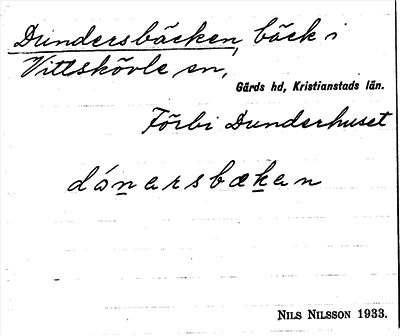 Dundersbäcken, bäck i
Vittskövle sn,
Gärds hd, Kristianstads län.
Förbi Dunderhuset
dónarsbækan
NILS NILSSON 1933.